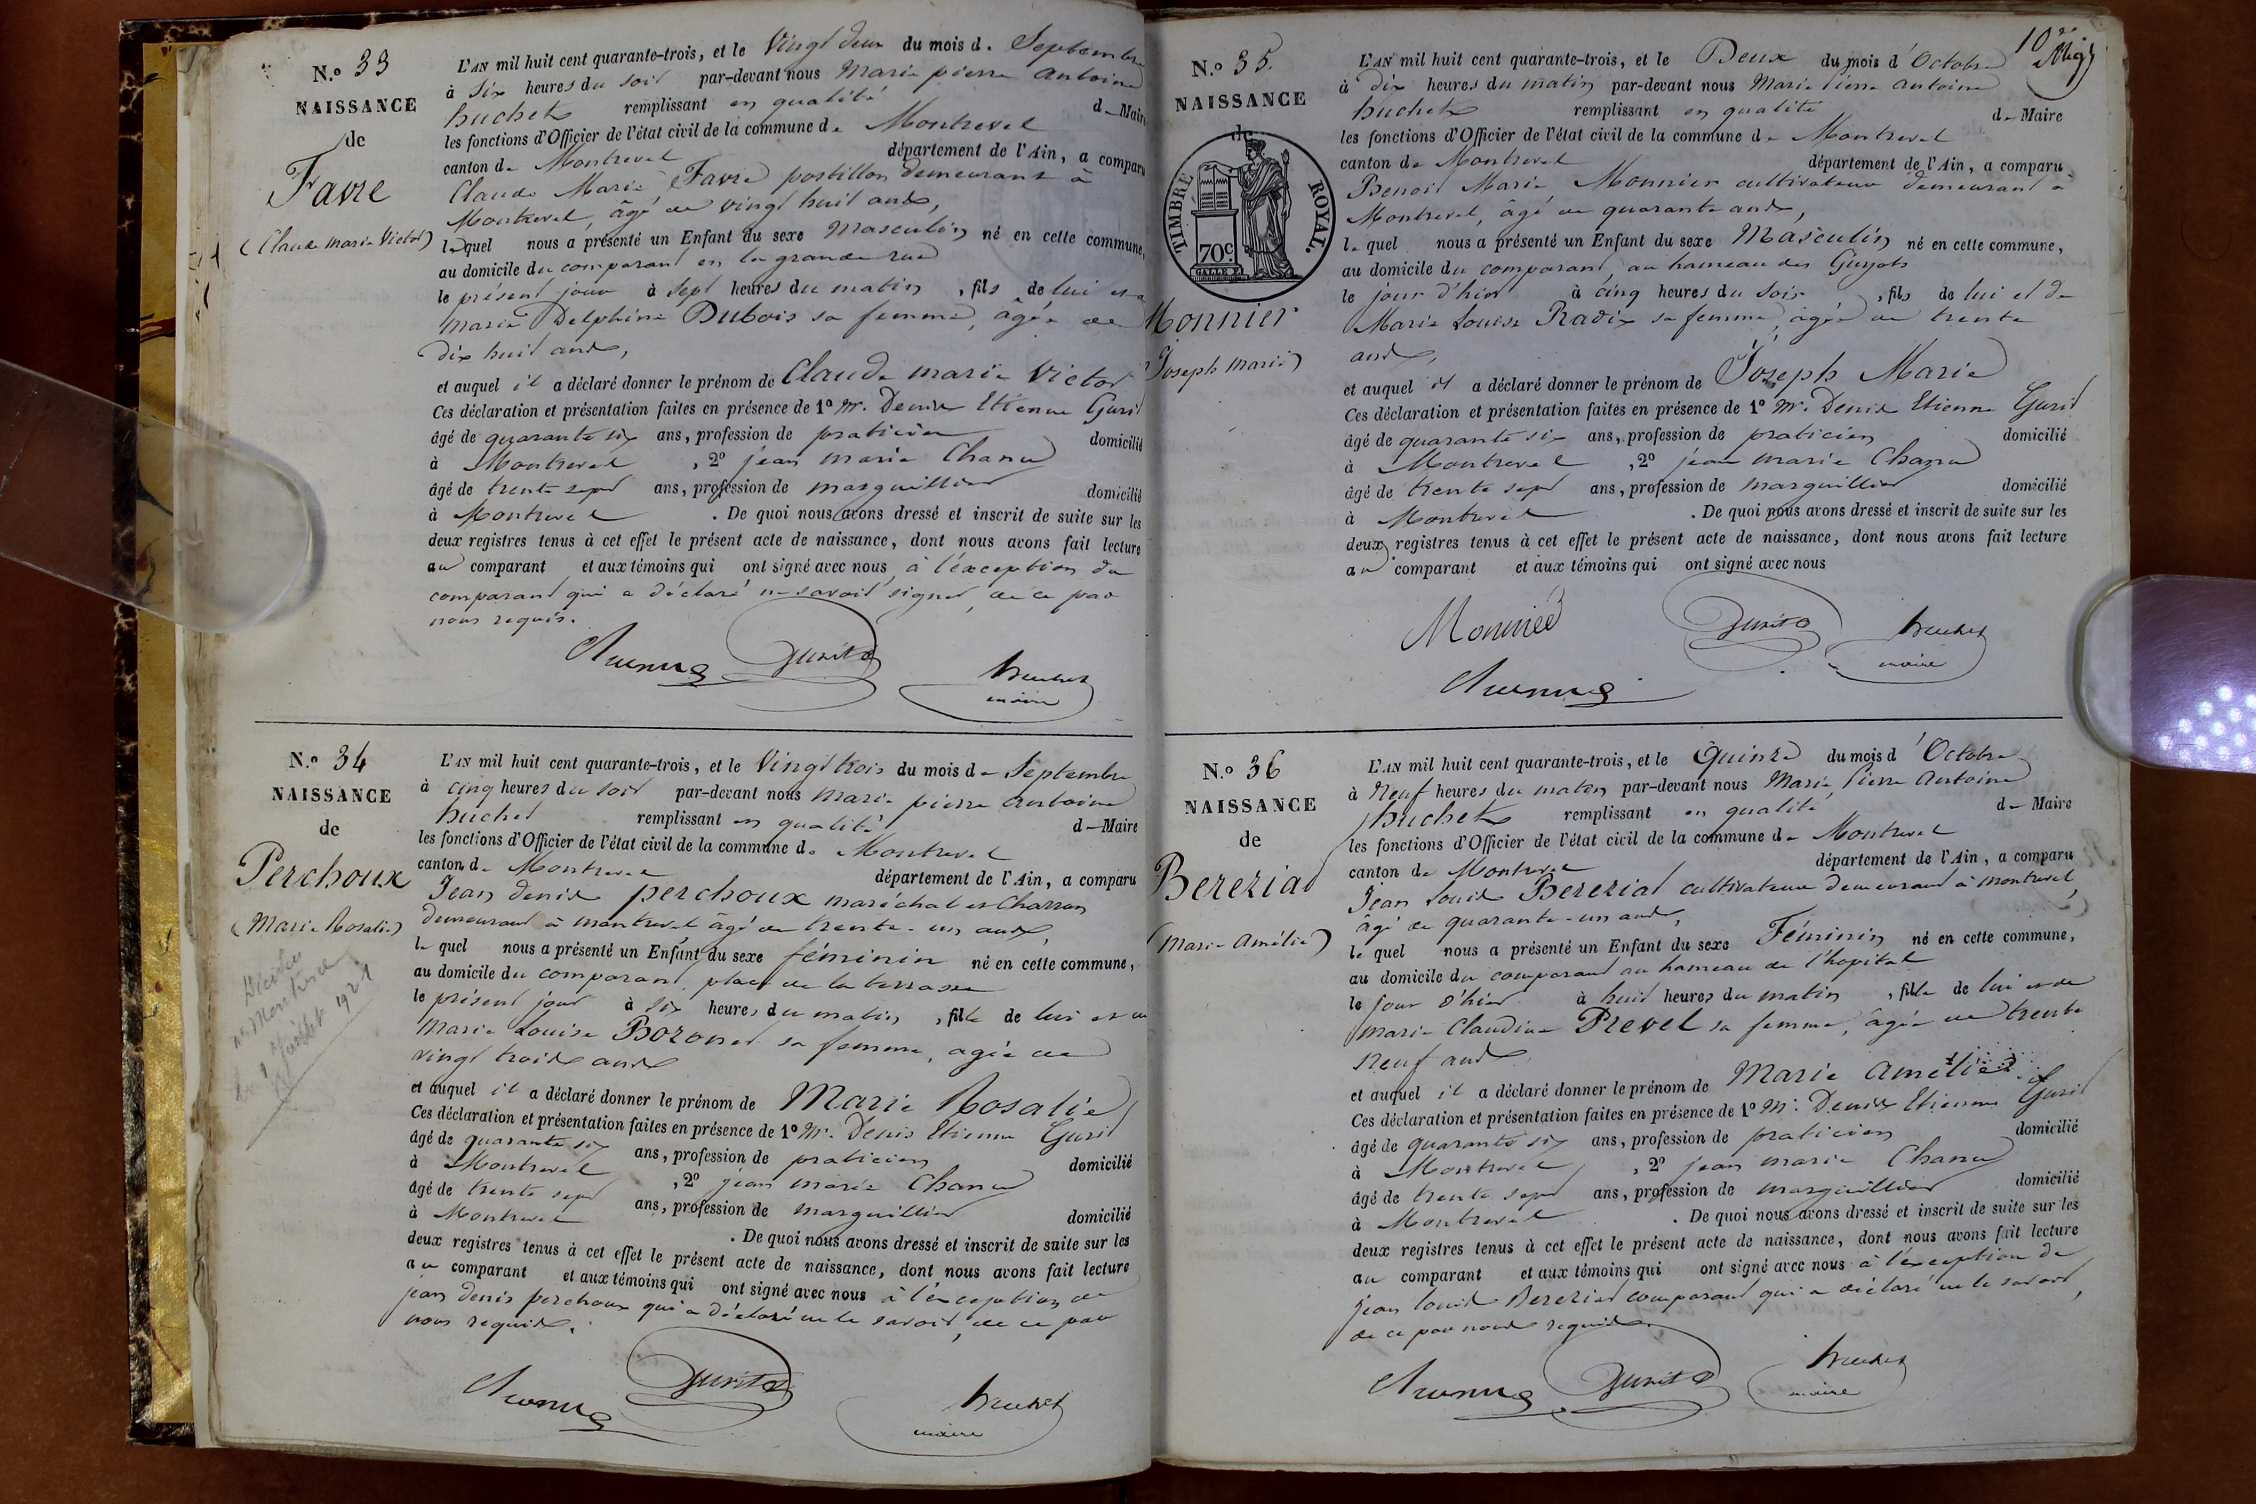 N.o 33
NAISSANCE
de
Favre
(Claude Marie Victor)
L'AN mil huit cent quarante-trois, et le Vingt deux du mois d. Septembre
à six heures du soir par-devant nous Marie pierre antoine
huchet remplissant en qualité de Maire
les fonctions d'Officier de l'état civil de la commune de Montrevel
canton de Montrevel département de l'Ain, a comparu
Claude Marie Favre postillon demeurant à
Montrevel, âgé de vingt huit ans,
lequel nous a présenté un Enfant du sexe Masculin né en cette commune,
au domicile du comparant en la grande rue
le présent jour à sept heures du matin, fils de lui et de
marie Delphine Dubois sa femme, âgée de
dix huit ans,
et auquel il a déclaré donner le prénom de Claude marie Victor
Ces déclaration et présentation faites en présence de 1o Mr. Denis Etienne Gurit
âgé de quarante six ans, profession de praticien domicilié
à Montrevel, 2o jean marie Chanu
âgé de trente sept ans, profession de marguillier domicilié
à Montrevel. De quoi nous avons dressé et inscrit de suite sur les
deux registres tenus à cet effet le présent acte de naissance, dont nous avons fait lecture
au comparant et aux témoins qui ont signé avec nous à l'exception du
comparant qui a déclaré ne savoir signer, de ce par
nous requis.
huchet
maire
N.o 34
NAISSANCE
de
Perchoux
(Marie Rosalie)
Décédée
le 1 Juillet 1921
L'AN mil huit cent quarante-trois, et le Vingt trois du mois de Septembre
à cinq heures du soir par-devant nous marie pierre antoine
huchet remplissant en qualité de Maire
les fonctions d'Officier de l'état civil de la commune de Montrevel
canton de Montrevel département de l'Ain, a comparu
Jean denis perchoux maréchal et Charron
demeurant à montrevel âgé de trente-un ans,
le quel nous a présenté un Enfant du sexe féminin né en cette commune,
au domicile du comparant, place de la terrasse
le présent jour à six heures du matin, fille de lui et de
Marie Louise Boronet sa femme, agée de
vingt trois ans
et auquel il a déclaré donner le prénom de Marie Rosalie
Ces déclaration et présentation faites en présence de 1o Mr. Denis Etienne Gurit
âgé de quarante six ans, profession de praticien domicilié
à Montrevel, 2o jean marie Chanu
âgé de trente sept ans, profession de marguillier domicilié
à Montrevel. De quoi nous avons dressé et inscrit de suite sur les
deux registres tenus à cet effet le présent acte de naissance, dont nous avons fait lecture
au comparant et aux témoins qui ont signé avec nous à l'exception de
jean denis perchoux qui a déclaré ne le savoir, de ce par
nous requis.
huchet
maire
10e
N.o 35.
NAISSANCE
de
TIMBRE ROYAL.
70c.
Monnier
(Joseph Marie)
L'AN mil huit cent quarante-trois, et le Deux du mois d'Octobre
à dix heures du matin par-devant nous Marie Pierre antoine
huchet remplissant en qualité de Maire
les fonctions d'Officier de l'état civil de la commune de Montrevel
canton de Montrevel département de l'Ain, a comparu
Benoit Marie Monnier cultivateur demeurant à
Montrevel, âgé de quarante ans,
le quel nous a présenté un Enfant du sexe Masculin né en cette commune,
au domicile du comparant, au hameau des Guyots
le jour d'hier à cinq heures du soir, fils de lui et de
Marie Louise Radix sa femme, agée de trente
ans,
et auquel il a déclaré donner le prénom de Joseph Marie
Ces déclaration et présentation faites en présence de 1o Mr. Denis Etienne Gurit
âgé de quarante six ans, profession de praticien domicilié
à Montrevel, 2o jean marie Chanu
âgé de trente sept ans, profession de marguillier domicilié
à Montrevel. De quoi nous avons dressé et inscrit de suite sur les
deux registres tenus à cet effet le présent acte de naissance, dont nous avons fait lecture
au comparant et aux témoins qui ont signé avec nous
Monnier
huchet
maire
N.o 36
NAISSANCE
de
Bereziat
(Marie Amélie)
L'AN mil huit cent quarante-trois, et le Quinze du mois d'Octobre
à Neuf heures du matin par-devant nous Marie Pierre Antoine
huchet remplissant en qualité de Maire
les fonctions d'Officier de l'état civil de la commune de Montrevel
canton de Montrevel département de l'Ain, a comparu
Jean Louis Bereziat cultivateur demeurant à montrevel,
âgé de quarante-un ans,
le quel nous a présenté un Enfant du sexe Féminin né en cette commune,
au domicile du comparant au hameau de l'hopital
le jour d'hier à huit heures du matin, fille de lui et de
Marie Claudine Prevel sa femme, âgée de trente
neuf ans
et auquel il a déclaré donner le prénom de Marie Amélie
Ces déclaration et présentation faites en présence de 1o Mr. Denis Etienne Gurit
âgé de quarante six ans, profession de praticien domicilié
à Montrevel, 2o jean marie Chanu
âgé de trente sept ans, profession de marguillier domicilié
à Montrevel. De quoi nous avons dressé et inscrit de suite sur les
deux registres tenus à cet effet le présent acte de naissance, dont nous avons fait lecture
au comparant et aux témoins qui ont signé avec nous à l'exception de
Jean Louis Bereziat comparant qui a déclaré ne le savoir,
de ce par nous requis.
huchet
maire